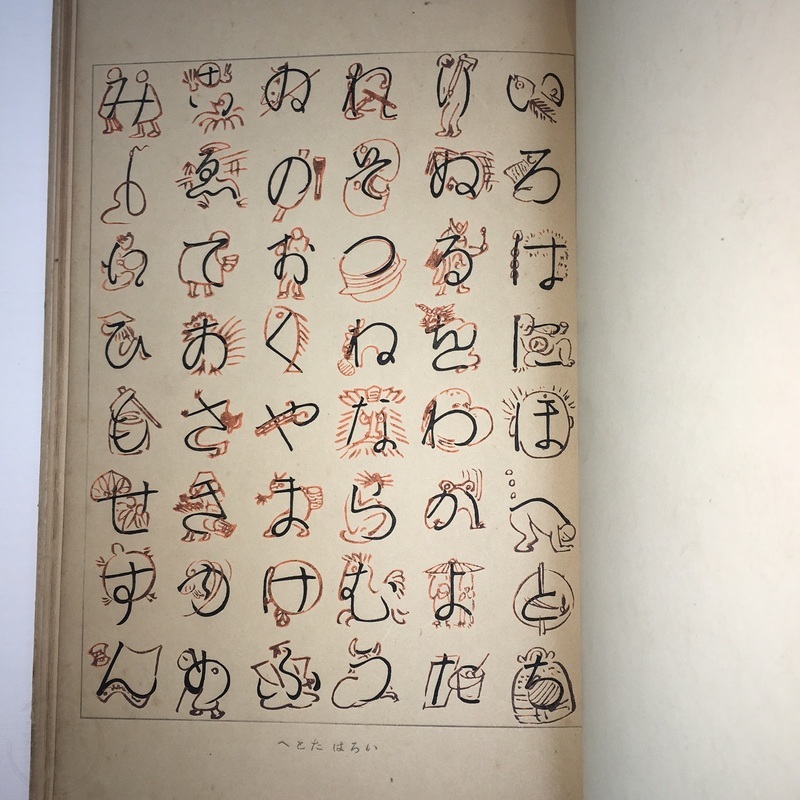 いろはにほへとち
りぬるをわかよた
れそつねならむう
ゐのおくやまけふ
こゑてあさきゆめ
みしえひもせすん
いろは たとへ